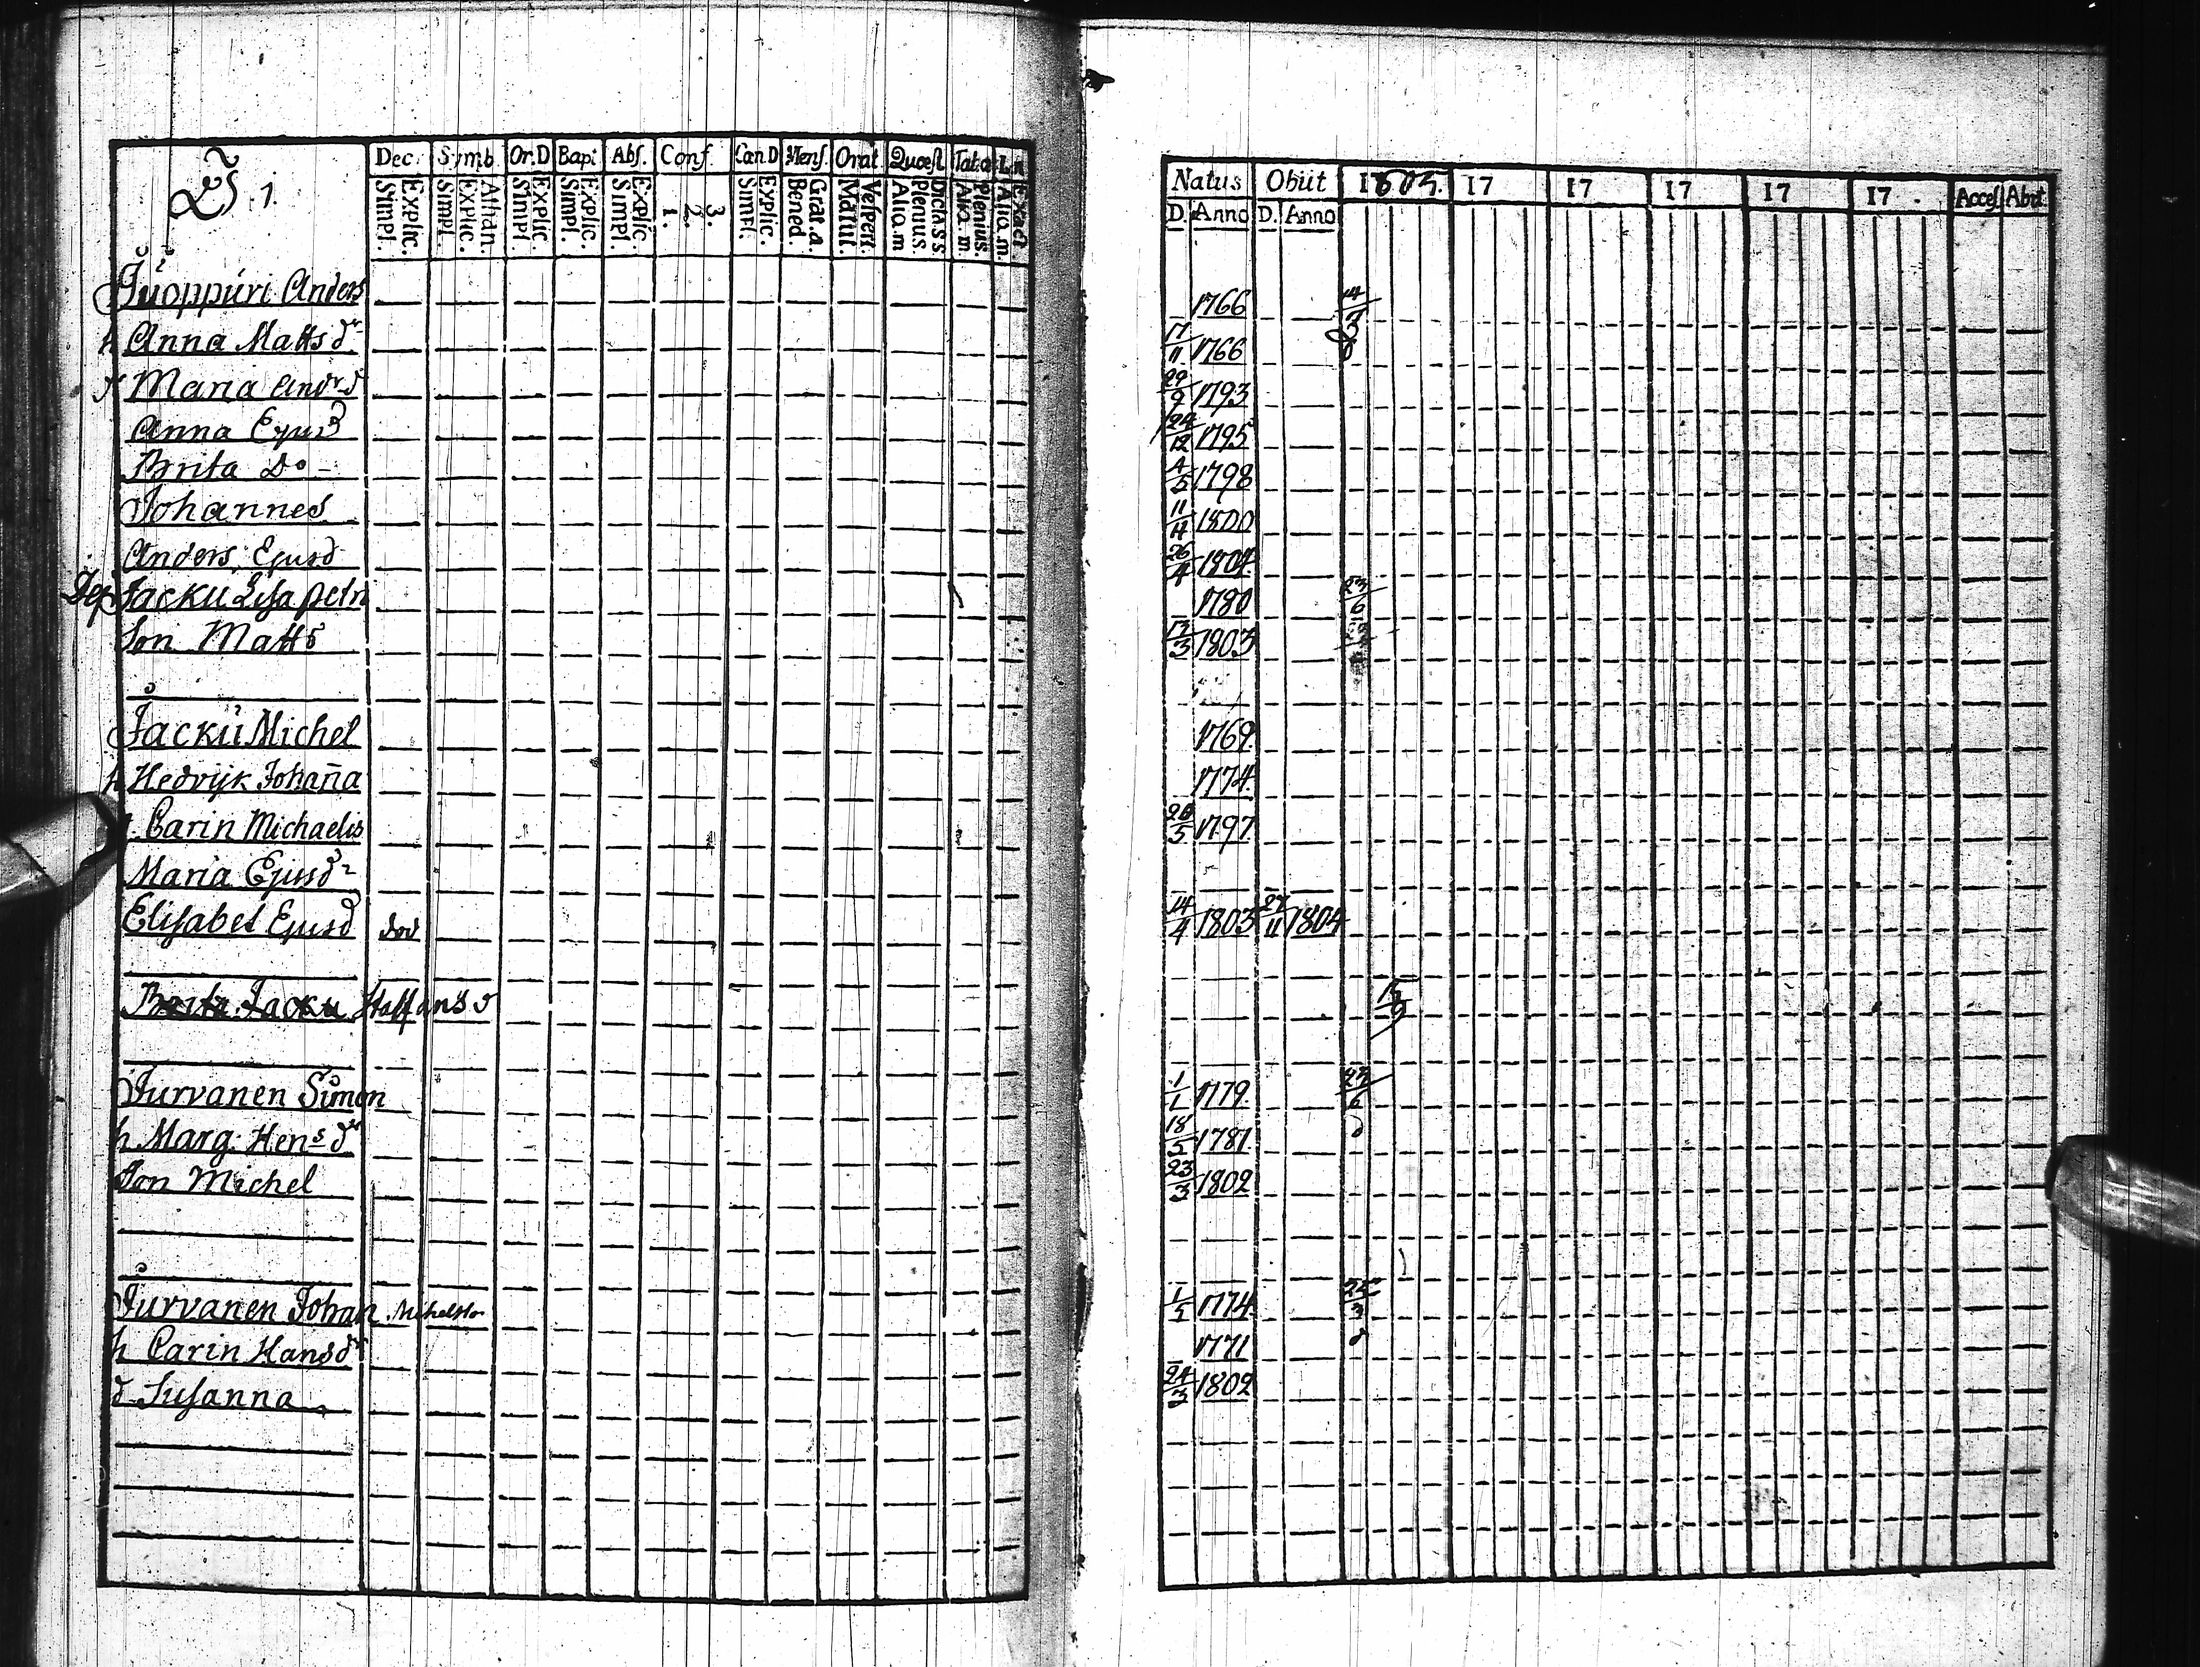 1.
Dec. Symb. Or.D Bapt Abs. Conf. Cœn D Mens. Orat. Quæst. Tab.œ L.N
Explic. Simpl. Athan. Explic. Simpl. Explic. Simpl. Explic. Simpl. Explic. Simpl. 3. 2. 1. Explic. Simpl. Grat.a. Bened. Vesperr. Matut. Dicta.s.s. Plenius. Alio.m Plenius. Alio.m Exact Alio.m.
Natus Obiit 1805. 17 17 17 17 17 Acces Abit
D. Anno D. Anno
Juoppuri Anders 1766 14/3
h Anna Matts dr 17/11 1766
d Maria Andr d 29/9 1793
Anna Ejusd 24/12 1795
Brita Do 4/5 1798
Johannes 11/11 1800
Anders Ejusd 26/4 1804.
Jacku Lisa petri 1780 23/6
Son Matts 17/3 1803
Jacku Michel 1769.
h Hedvijk Johaña 1774.
Carin Michaelis 28/5 1797.
Maria Ejusd
Elisabet Ejusd död 14/4 1803 27/11 1804
Brita Jacku Staffans d
Turvanen Simon 1/1 1779. 23/6
h Marg. Hens dr 18/5 1781.
Son Michel 23/3 1802
Turvanen Johan Michelson 1/5 1774. 25/3
h Carin Hansdr 1771
d Susanna 24/3 1802